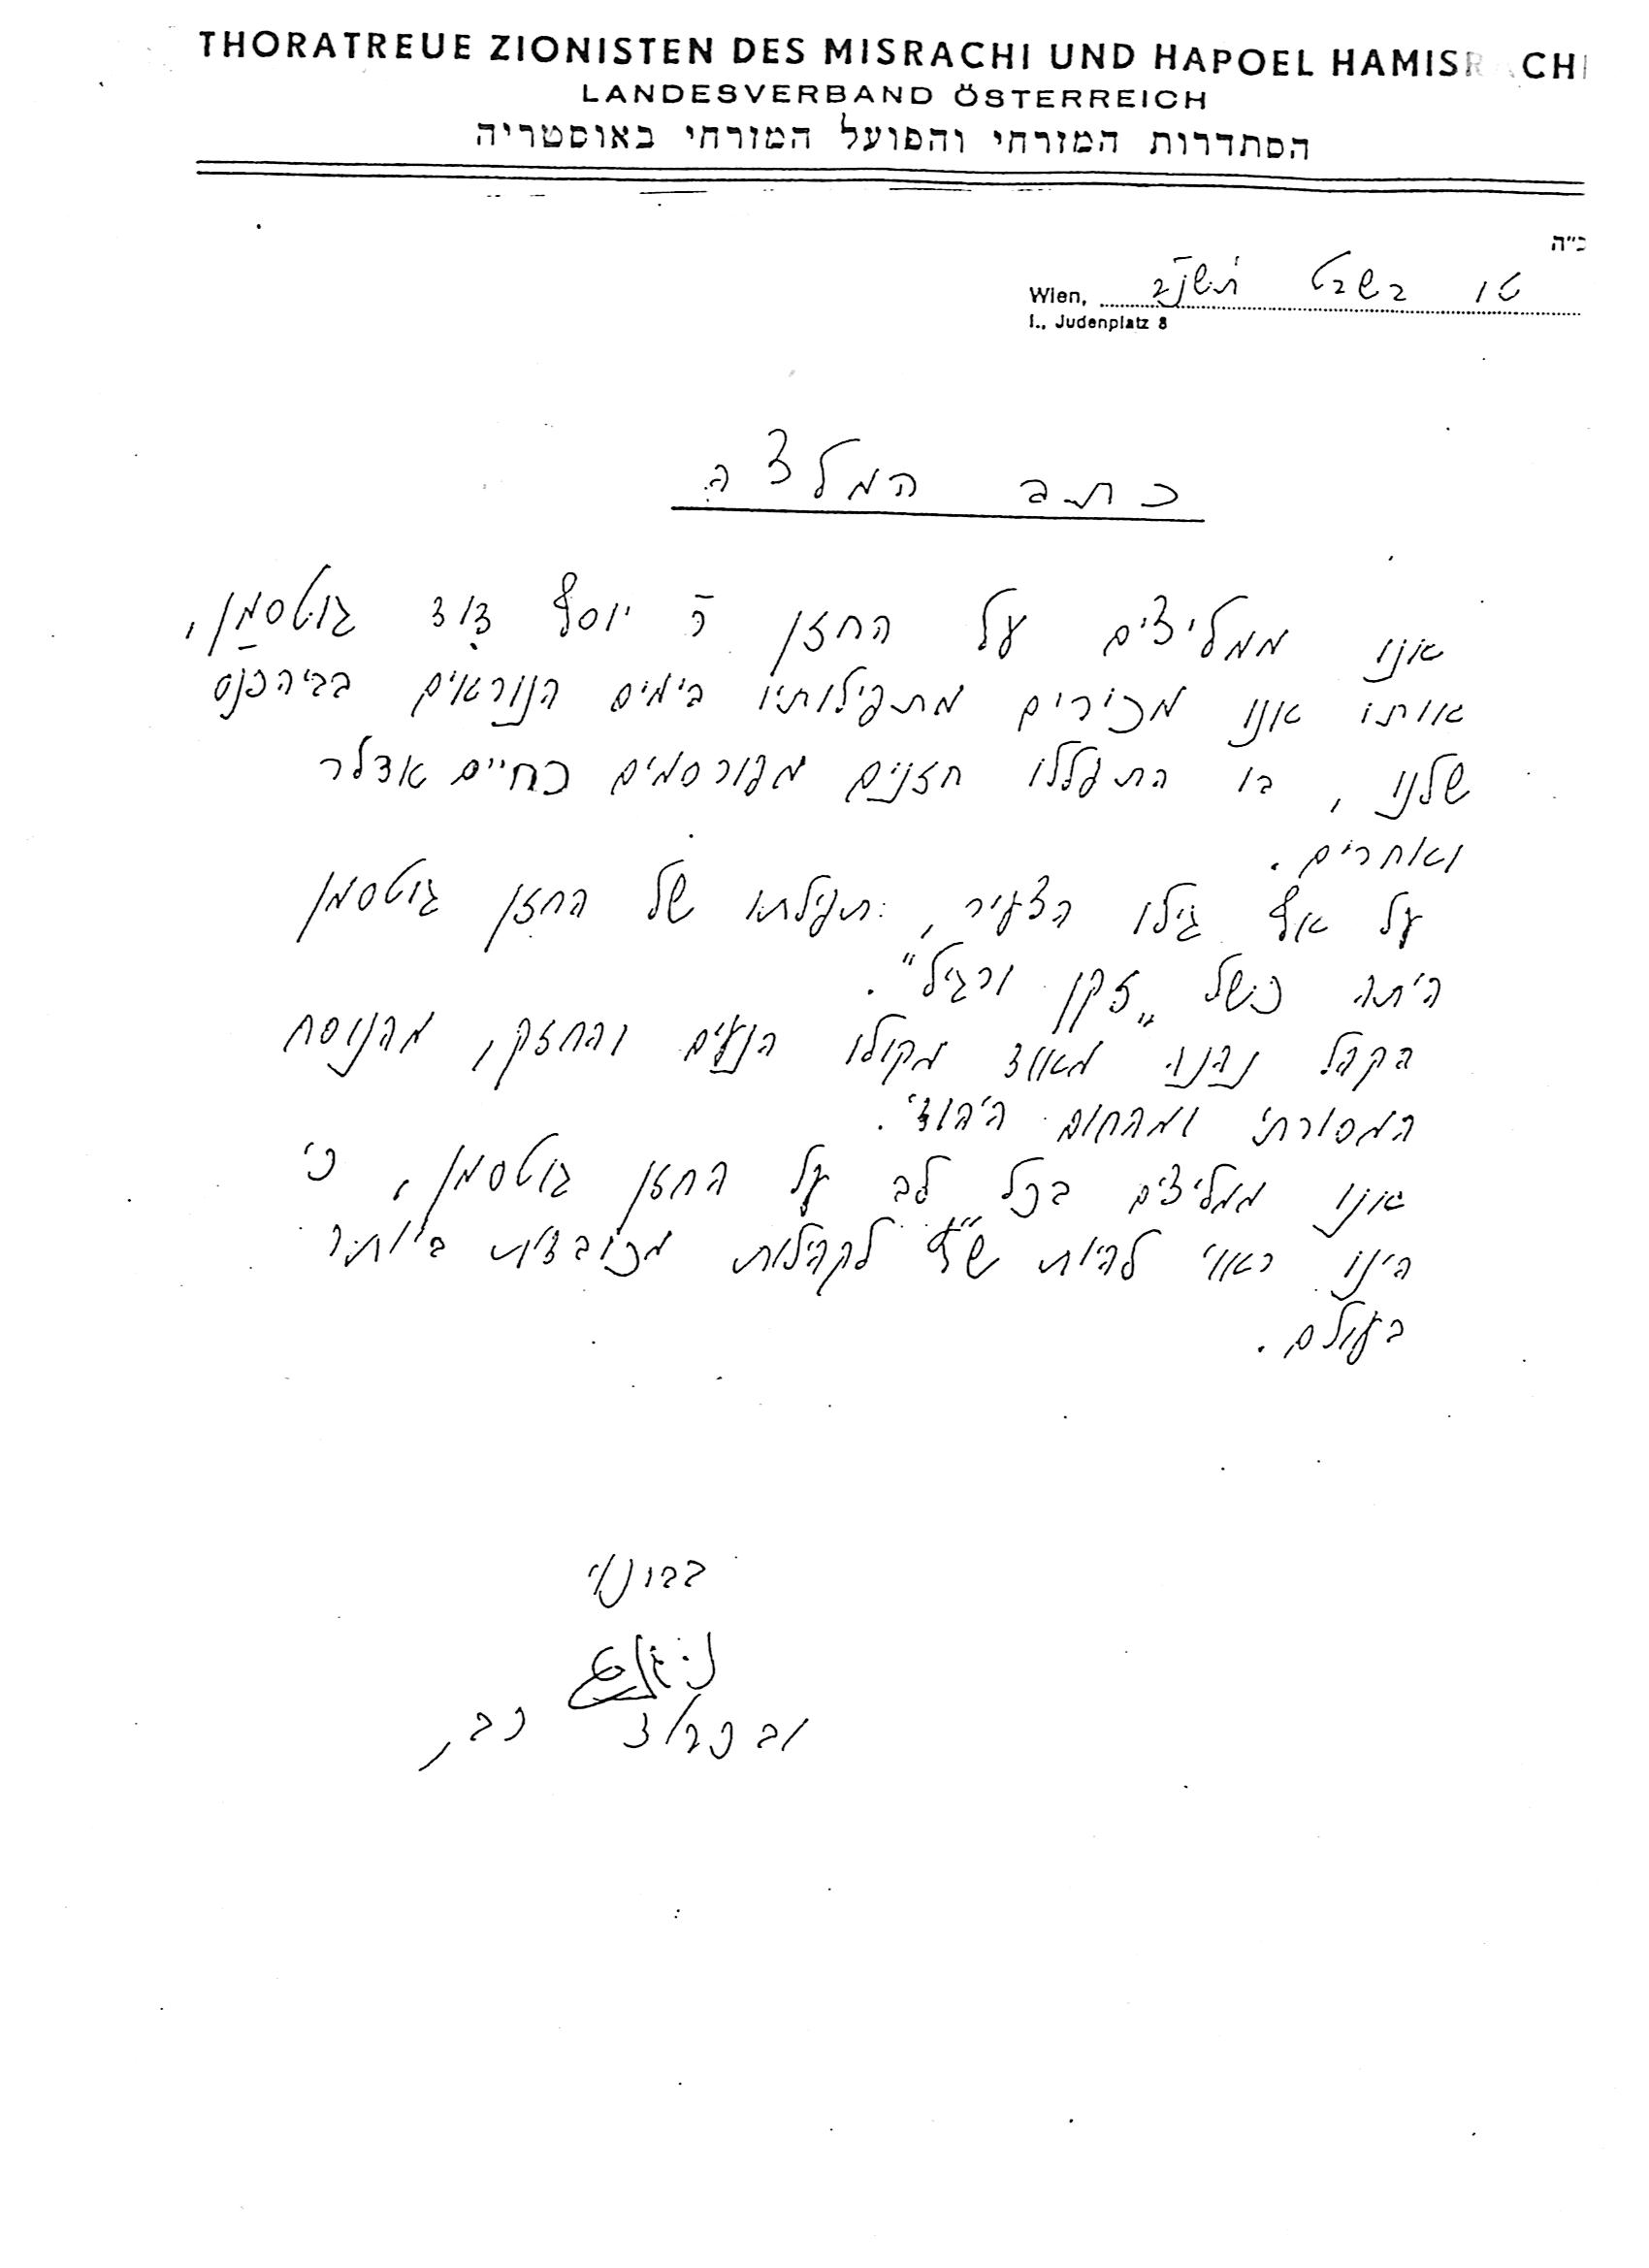 THORATREUE ZIONISTEN DES MISRACHI UND HAPOEL HAMISRACHI
LANDESVERBAND ÖSTERREICH
הסתדרות המזרחי והפועל המזרחי באוסטריה
ב״ה
Wien, טו בשבט תשנ״ב
I., Judenplatz 8
כתב המלצה
אנו ממליצים על החזן ר' יוסף דוד גוטסמן,
אותו אנו מכירים מתפילותיו בימים הנוראים בביהכנ״ס
שלנו, בו התפללו חזנים מפורסמים כחיים אדלר
ואחרים.
על אף גילו הצעיר, תפלתו של החזן גוטסמן
היתה כשל „זקן ורגיל".
הקהל נהנה מאוד מקולו הנעים והחזק, מהנוסח
המסורתי ומהחום היהודי.
אנו ממליצים בכל לב על החזן גוטסמן, כי
הינו ראוי להיות ש״ץ לקהלות מכובדות ביותר
בעולם.